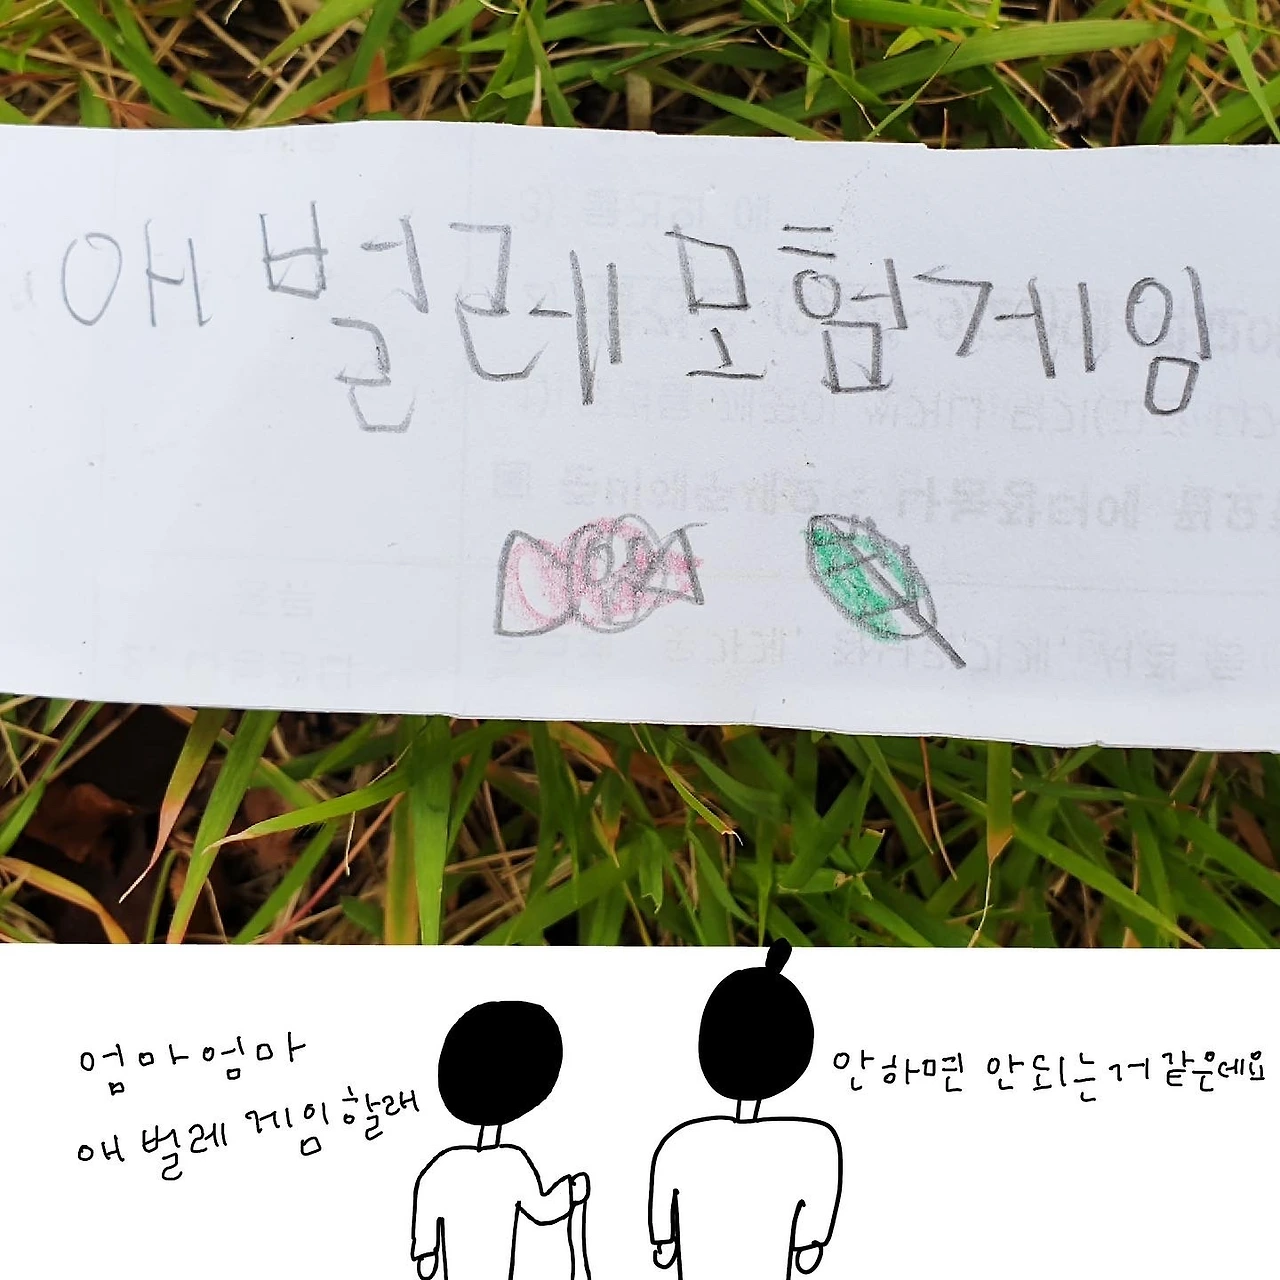 애벌레모험게임
엄마엄마
애벌레 게임할래
안하면 안되는거 같은데요